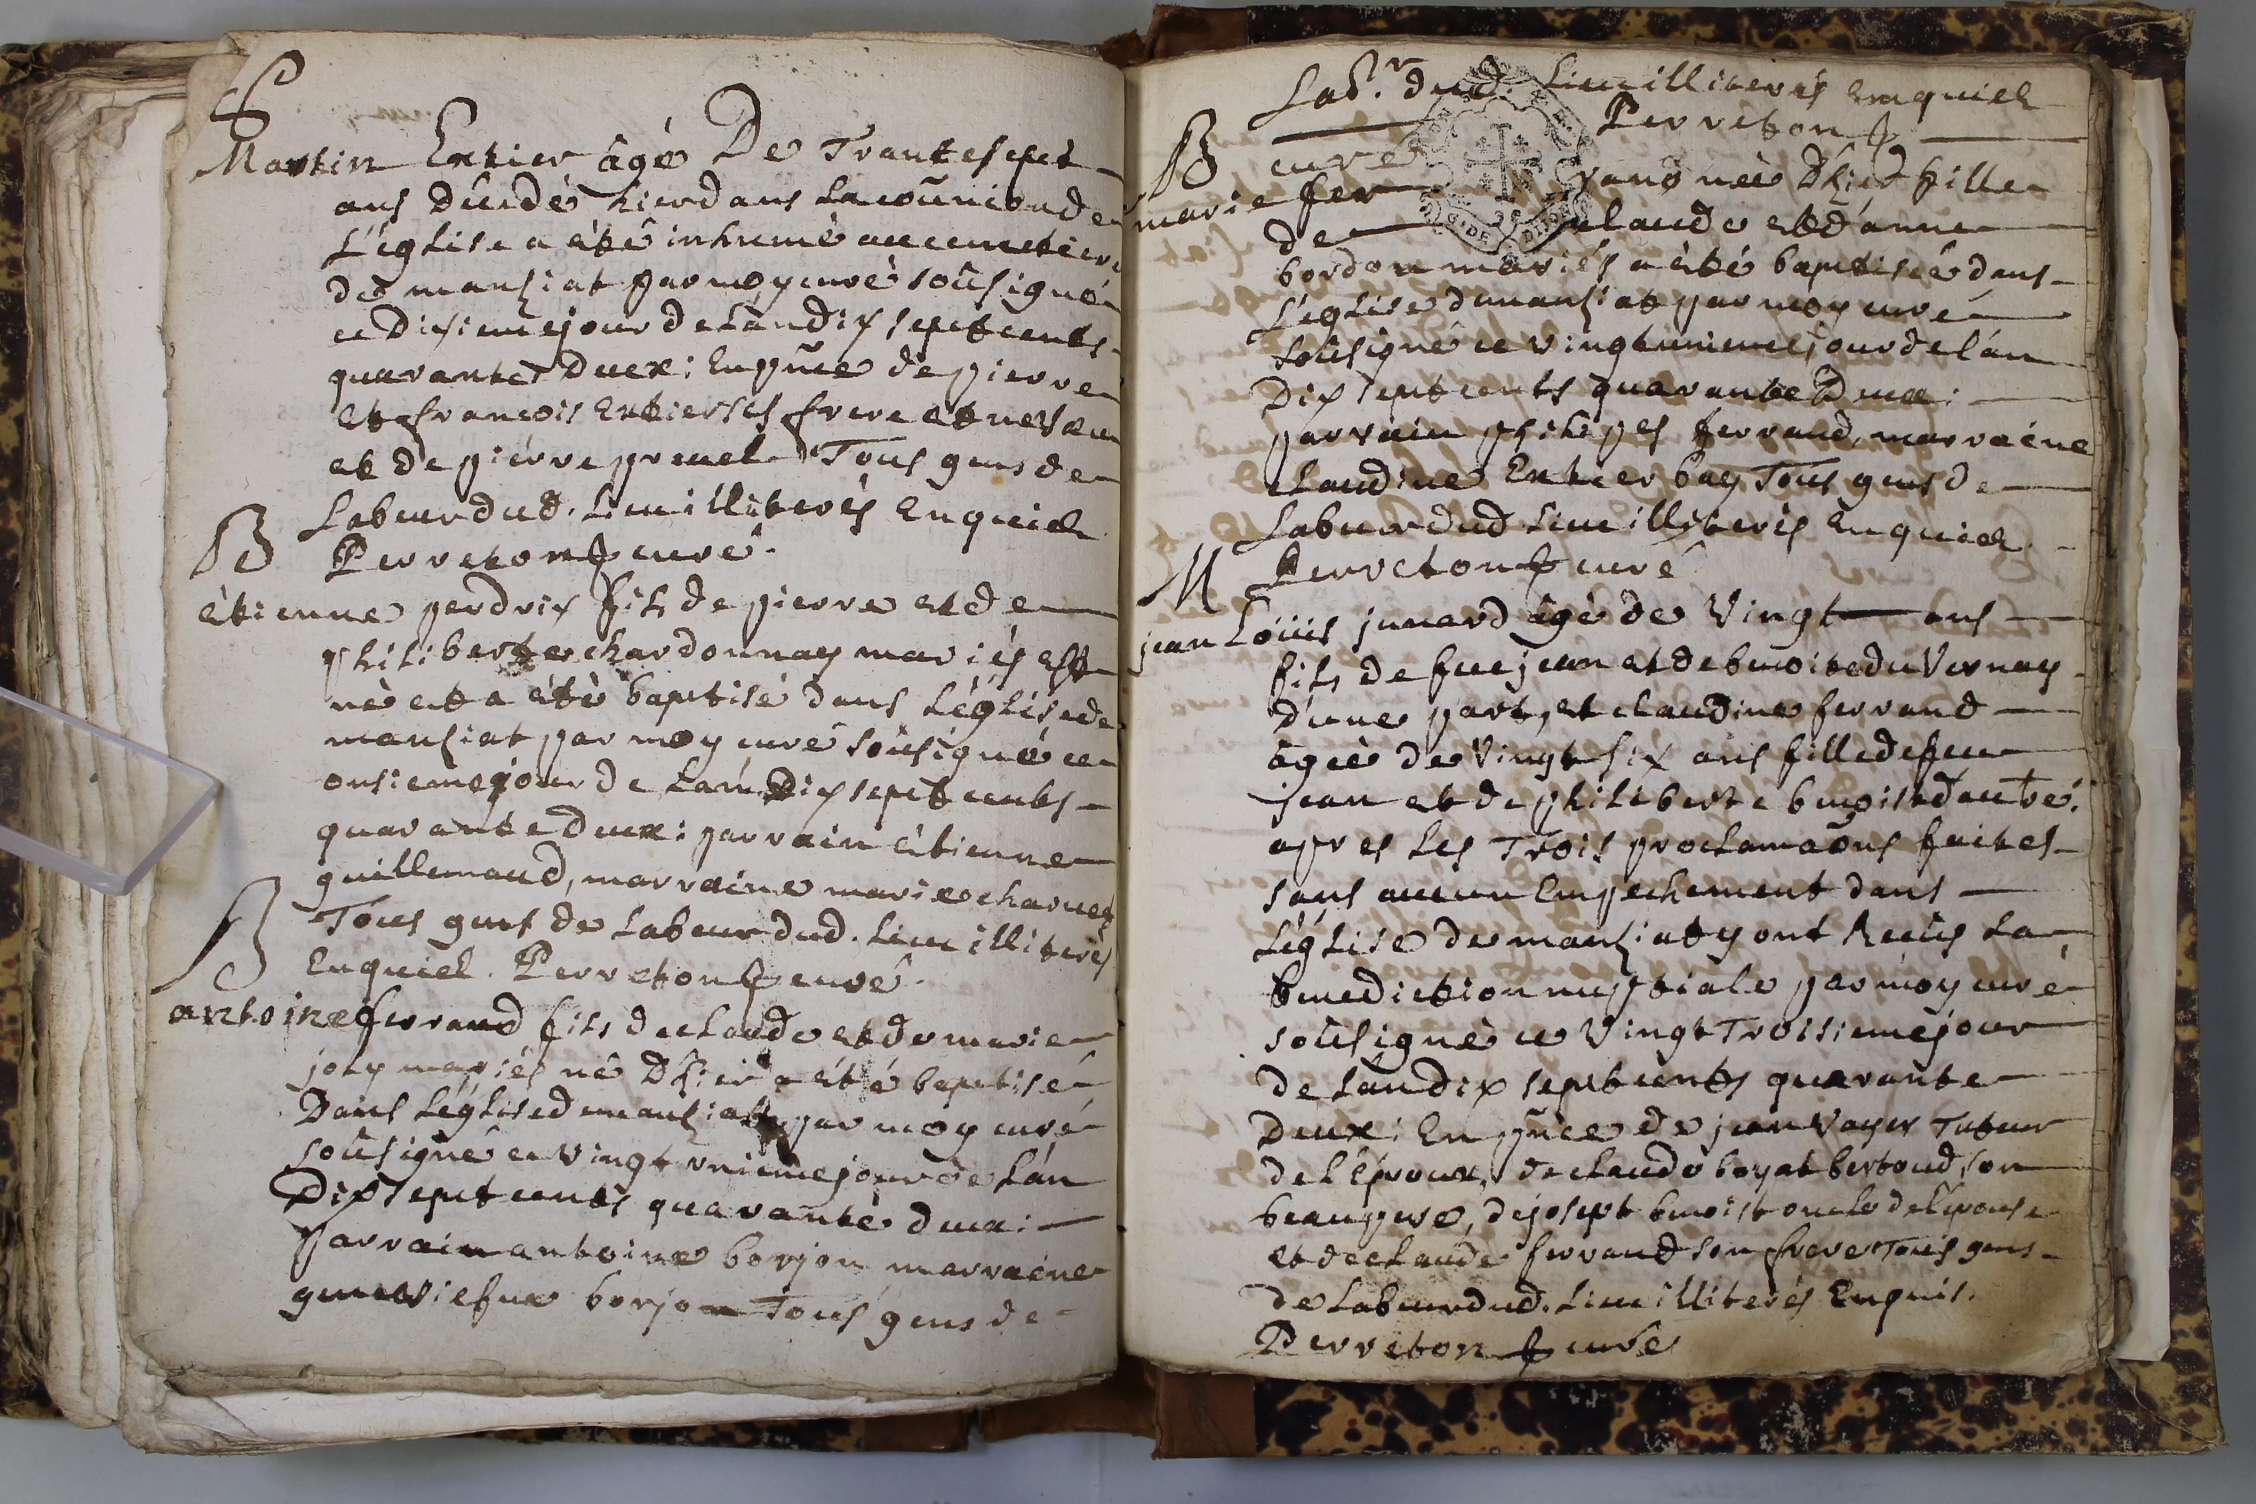 S
Martin Entier âgé De Trante sept
ans Décédé hier dans La cõunion de
L'église a été inhumé au cemetiere
de manziat par moy curé soûsigné
ce dixieme jour de L'an dix sept cents
quarante Deux: En pñce de pierre
et françois Entier ses frere et neveu
et de pierre pruel Tous gens de
Labeur dud. Lieu illiterés Enquid
Perreton curé.
B
étienne perdrix fils de pierre et de
philiberte chardonnay mariés est
né et a été baptisé dans L'église de
manziat par moy curé soûsigné ce
onsieme jour de L'an Dix sept cents
quarante deux: parrain étienne
guillemaud, marraine marie
Tous gens de Labeur dud. Lieu illiterés
Enquid. Perreton curé.
B
antoine ferrand fils de claude et de marie
joly mariés né D'hier a été baptisé
Dans L'église de manziat par moy curé
soûsigné ce vingt unieme jour de L'an
Dix sept cents quarante deux:
parrain antoine borjon marraine
geneviefue borjon Tous gens de
Lab.r dud. Lieu illiterés Enquid
Perreton
curé
B
marie fer rand née D'hier fille
de claude et d'anne
bordon mariés a été baptisée dans
L'église de manziat par moy curé
soûsigné ce vingt unieme jour de l'an
Dix sept cents quarante Deux:
parrain philipes ferrand, marraine
claudine Entier bay Tous gens de
Labeur dud Lieu illiterés Enquid
Perreton curé
M
jean Loüis junerd âgé de Vingt ans
fils de feu jean et de benoite du Vernay
d'une part, et claudine ferrand
âgée de Vingt six ans fille de feu
jean et de philiberte benoist d'autre.
apres Les Trois proclamaõns faites
sans aucun Empechement dans
L'église de manziat y ont Receüs La
benediction nuptiale par moy curé
soûsigné ce Vingt Troisieme jour
de L'an dix sept cents quarante
Deux: En pñce de jean Voyer Tuteur
de L'Epoux, de claude boyat bertoud, son
beaupere, de josept benoist oncle de L'epouse
et de claude ferrand son frere Tous gens
de Labeur dud. Lieu illiterés Enquis.
Perreton curé